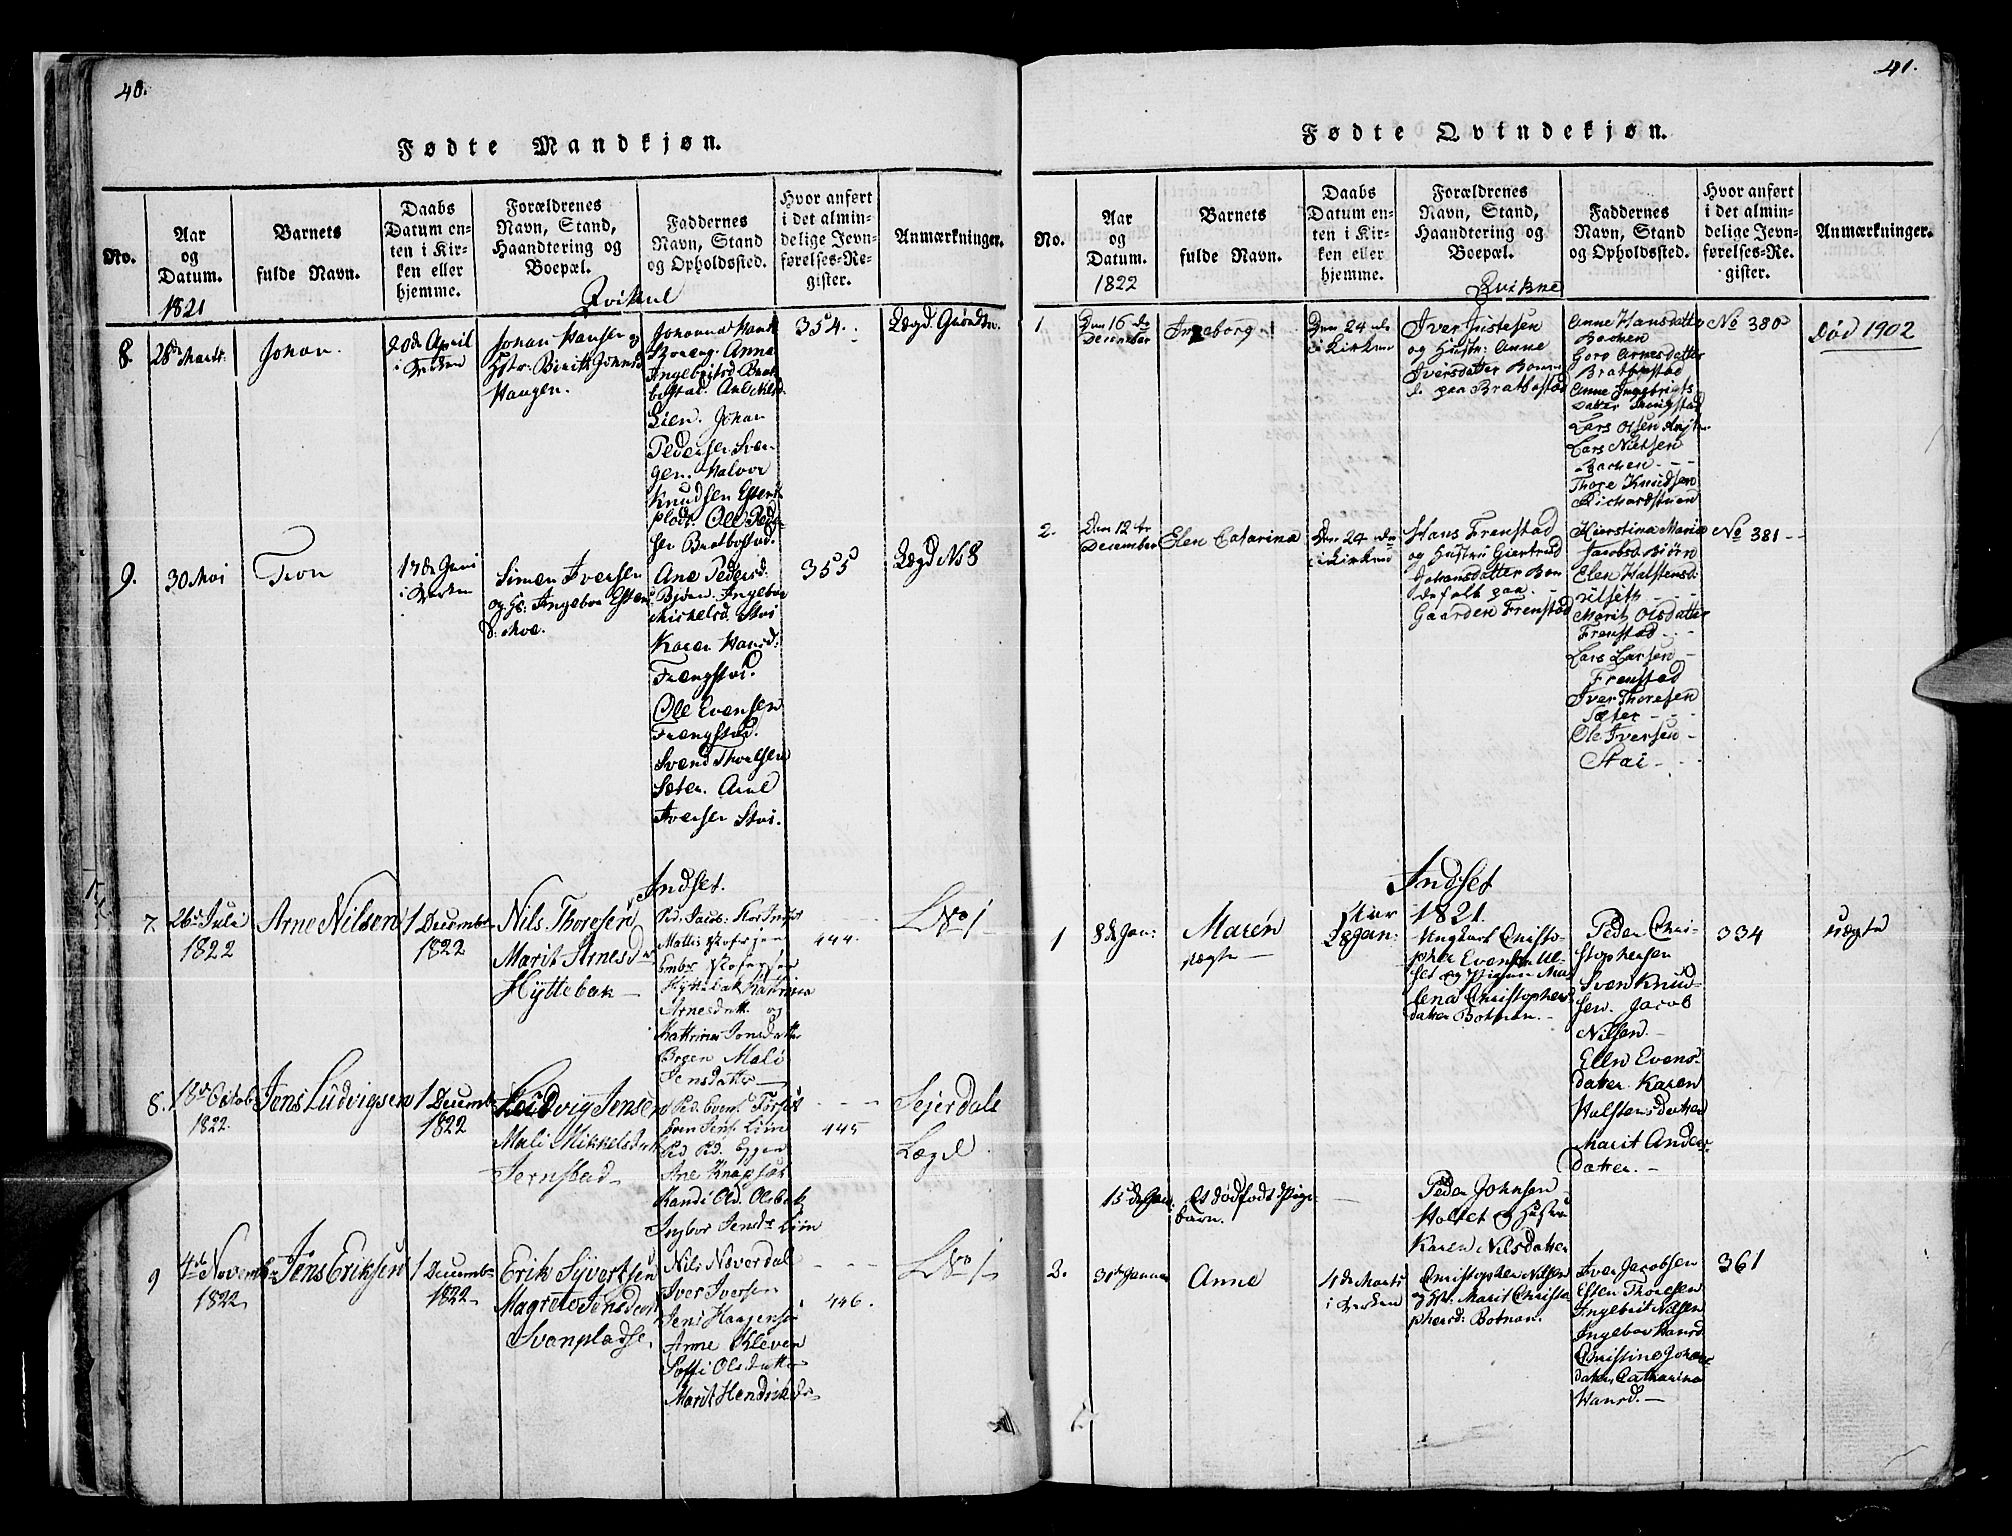 40.
Fødte Mandkjøn.
No.
Aar
og
Datum.
1821
Barnets
fulde Navn.
Daabs
Datum en-
ten i Kir-
ken eller
hjemme.
Forældrenes
Navn, Stand,
Haandtering og
Boepæl.
Faddernes
Navn, Stand
og Opholdssted.
Hvor anført
i det almin-
delige Jevn-
førelses-Re-
gister.
Anmærkninger.
8.
28de Marts.
Johan.
20de April
i Kirken
Johan Hansen og
Hstr. Birith Johnsd
Haugen.
Johanna
Anna
Ingebritsd
Lien. Johan
Pedersen
Halvor
Knudsen
Ole
Bratbostad.
354.
Lægd.
9.
30 Mai
Tron
i Kirken
Simen Iversen
og Hs: Ingebor Esten
d: Moe.
Ane Pedersd:
Ingebor
Mickelsd. Stai
Karen Hansd:
Frængstad.
Ole Evensen
Frængstad.
Svend Thoresen
Sæter. Arne
Iversen Stai.
355
Lægd No 8
Indset.
7.
26de Juli
1822
Arne Nilsen
1 Decembr
1822
Nils Thoresen
Marit Arnesdr
Hyttebak
Hyttebak Kattrina
Arnesdatt. og
Kattrina Jonsdatter
Broen Mali
Jensdatter
444.
LNo 1
8.
18de Octob
1822.
Jens Ludvigsen
1 Decembr
1822
Ludvig Jensen
Mali Mikkelsdatt
Jernstad
Ped. Evens.
Even Jens. Lien
Ped. Ped. Eggen
Ane
Randi Olsd. Olsbak
Ingbor Jensdr Lien
445
Sejerdals
Lægd
9
4de Novembr
1822
Jens Eriksen
1 Decembr
1822
Erik Syvertsen
Magrete Jensdatt
Svenpladsen
Nils Næverdal
Iver Iversen
Jens Haagensen
Anne Kleven
Soffi Olsdatter
Marit Hendriksdr
446.
LNo 1
41.
Fødte Qvindekjøn.
No.
Aar
og
Datum.
1822
Barnets
fulde Navn.
Daabs
Datum en-
ten i Kir-
ken eller
hjemme.
Forældrenes
Navn, Stand,
Haandtering og
Boepæl.
Qvikne
Faddernes
Navn, Stand
og Opholdssted.
Hvor anført
i det almin-
delige Jevn-
førelses-Re-
gister.
Anmærkninger.
1.
Den 16de
December
Ingeborg
Den 24de
i Kirken
Iver Justesen
og Hustr: Anne
Iversdatter Bonn
d. paa Bratbostad
Anne Hansdatter
Bachen
Goro Arnesdatter
Bratbostad
Anne Ingebrigts
Datter
Lars Olsen
Lars Nielsen
Bachen
Thore Knudsen
No 380
død 1902
2.
Den 12te
December
Elen Catarina
Den 24de
i Kirken
Hans Frenstad
og Hustru Giertrud
Johansdatter Bon
defolk paa
Gaarden Frenstad
Kierstina Maria
Jacobsd. Biørn
Elen Halstensd:
Marit Olsdatter
Frenstad
Lars Larsen
Frenstad
Iver Thoresen
Sæter
Ole Iversen
Stai
No 381
Indset
1821.
1
8de Jan:
Maren
uægte
28 Jan:
Ungkarl Christo-
pher Evensen
set og Pigen Mar
lena Christophers
datter Botnan.
Peder Chri-
stophersen
Sven Knud-
sen. Jacob
Nilsen.
Ellen Evens-
datter. Karen
Halstensdatter
Marit Anders-
datter.
334
uægte
15de Jan:
Et dødfødt Pige-
barn.
Peder Johnsen
Holtet og Hustru
Karen Nilsdatter
2.
31de Januar
Anne
4de Marts
i Kirken
Christopher Nilsen
og Hr. Marit Christo
phersd: Botnan.
Iver Jacobsen
Esten Thoresen
Ingebrit Nilsen
Ingebor Hansd
Christine Johans
datter Catharina
Hansd.
361